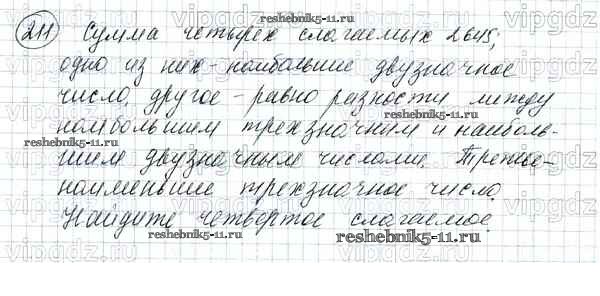 211 Сумма четырех слагаемых 2645;
одно из них - наибольшее двузначное
число, другое - равно разности между
наибольшим трехзначным и наиболь-
шим двузначным числами. Третье -
наименьшее трехзначное число.
Найдите четвертое слагаемое.
reshebnik5-11.ru
reshebnik5-11.ru
reshebnik5-11.ru
reshebnik5-11.ru
reshebnik5-11.ru
vipgdz